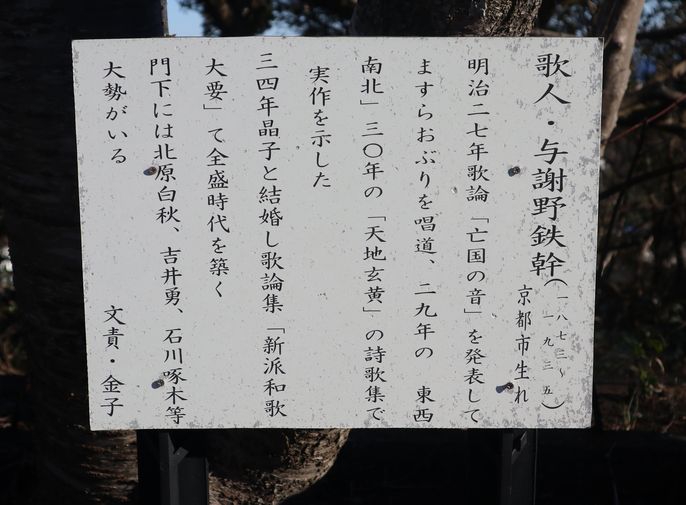 歌人・与謝野鉄幹(一八七三～一九三五)
京都市生れ
明治二七年歌論「亡国の音」を発表して
ますらおぶりを唱道、二九年の 東西
南北」三〇年の「天地玄黄」の詩歌集で
実作を示した
三四年晶子と結婚し歌論集「新派和歌
大要」て全盛時代を築く
門下には北原白秋、吉井勇、石川啄木等
大勢がいる
文責・金子